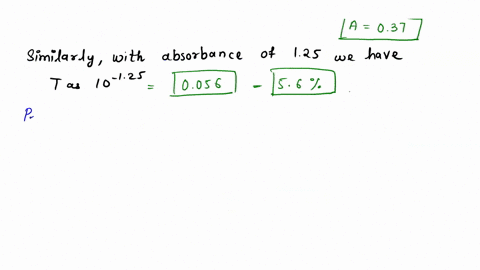 A = 0.37
Similarly, with absorbance of 1.25 we have
T as 10^-1.25 = 0.056 - 5.6 %
P-